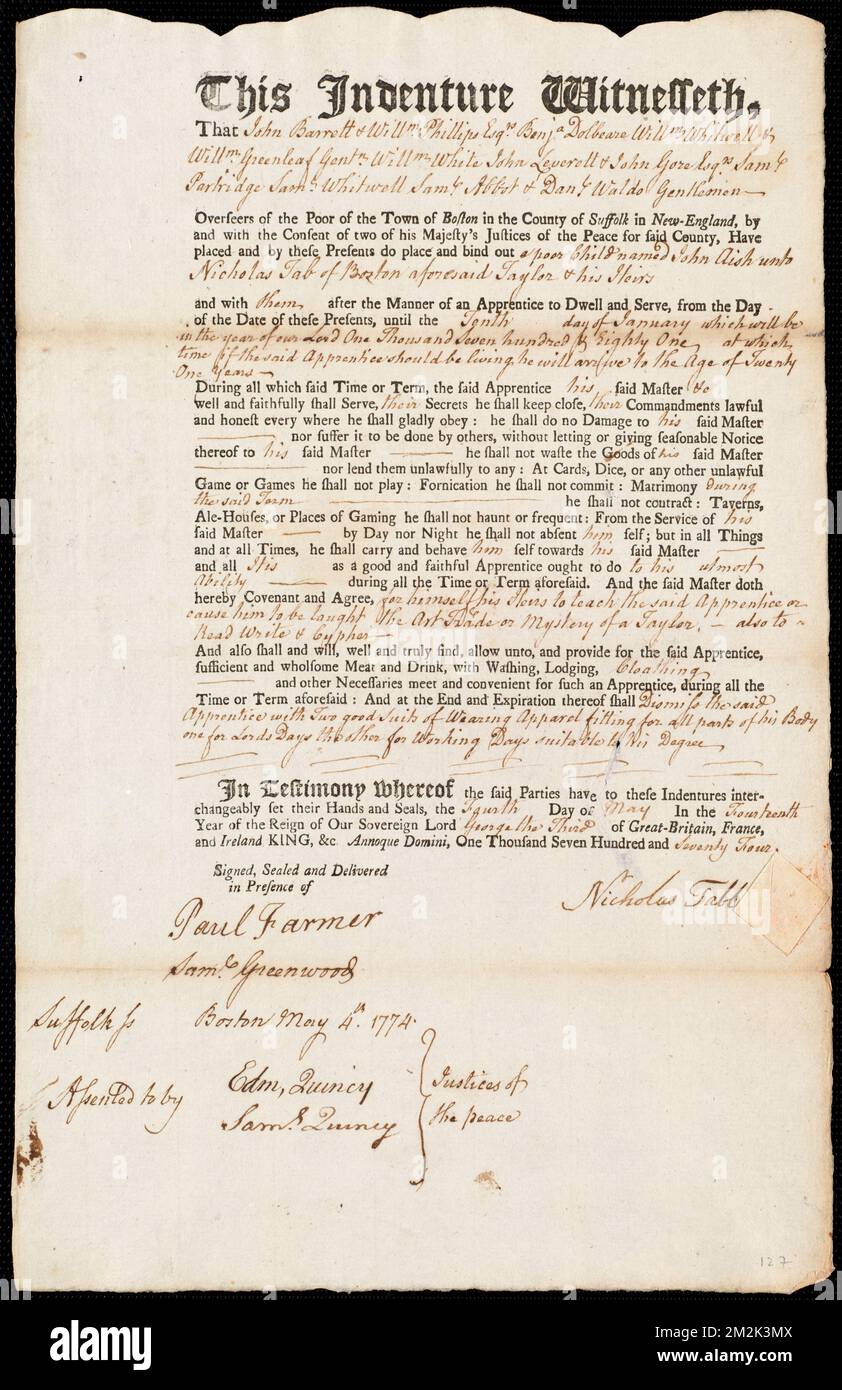 This Indenture Witnesseth,
That John Barrett & Willm. Phillips Esqrs Benja Dolbeare Willm. Whitwell &
Willm. Greenleaf Gentn. Willm. White John Leverett & John Gore Esqrs Saml.
Partridge Saml. Whitwell Saml. Abbot & Danl. Waldo Gentlemen
Overseers of the Poor of the Town of Boston in the County of Suffolk in New-England, by
and with the Consent of two of his Majesty's Justices of the Peace for said County, Have
placed and by these Presents do place and bind out a poor Child named John Aish unto
Nicholas Tab of Boston aforesaid Taylor & his Heirs
and with them after the Manner of an Apprentice to Dwell and Serve, from the Day
of the Date of these Presents, until the Tenth day of January which will be
in the year of our Lord One Thousand Seven hundred & Eighty One at which
time if the said Apprentice should be living he will arrive to the Age of Twenty
One years
During all which said Time or Term, the said Apprentice his said Master &c
well and faithfully shall Serve, their Secrets he shall keep close, their Commandments lawful
and honest every where he shall gladly obey: he shall do no Damage to his said Master
nor suffer it to be done by others, without letting or giving seasonable Notice
thereof to his said Master he shall not waste the Goods of his said Master
nor lend them unlawfully to any: At Cards, Dice, or any other unlawful
Game or Games he shall not play: Fornication he shall not commit: Matrimony during
the said Term he shall not contract: Taverns,
Ale-Houses, or Places of Gaming he shall not haunt or frequent: From the Service of his
said Master by Day nor Night he shall not absent him self; but in all Things
and at all Times, he shall carry and behave him self towards his said Master
and all His as a good and faithful Apprentice ought to do to his utmost
Ability during all the Time or Term aforesaid. And the said Master doth
hereby Covenant and Agree, for himself his Heirs to teach the said Apprentice or
cause him to be taught the Art Trade or Mystery of a Taylor, also to
Read Write & Cypher
And also shall and will, well and truly find, allow unto, and provide for the said Apprentice,
sufficient and wholsome Meat and Drink, with Washing, Lodging, Cloathing
and other Necessaries meet and convenient for such an Apprentice, during all the
Time or Term aforesaid: And at the End and Expiration thereof shall Dismiss the said
Apprentice with Two good Suits of Wearing Apparel fitting for all parts of his Body
one for Lords Days the other for Working Days suitable to his Degree
In Testimony whereof the said Parties have to these Indentures inter-
changeably set their Hands and Seals, the Fourth Day of May In the Fourteenth
Year of the Reign of Our Sovereign Lord George the Third of Great-Britain, France,
and Ireland KING, &c. Annoque Domini, One Thousand Seven Hundred and Seventy Four.
Signed, Sealed and Delivered
in Presence of
Nicholas Tabb
Paul Farmer
Saml. Greenwood
Suffolk ss Boston May 4th. 1774.
Assented to by Edm, Quincy Justices of
Saml. Quincy the peace
127
alamy
Image ID: 2M2K3MX
www.alamy.com